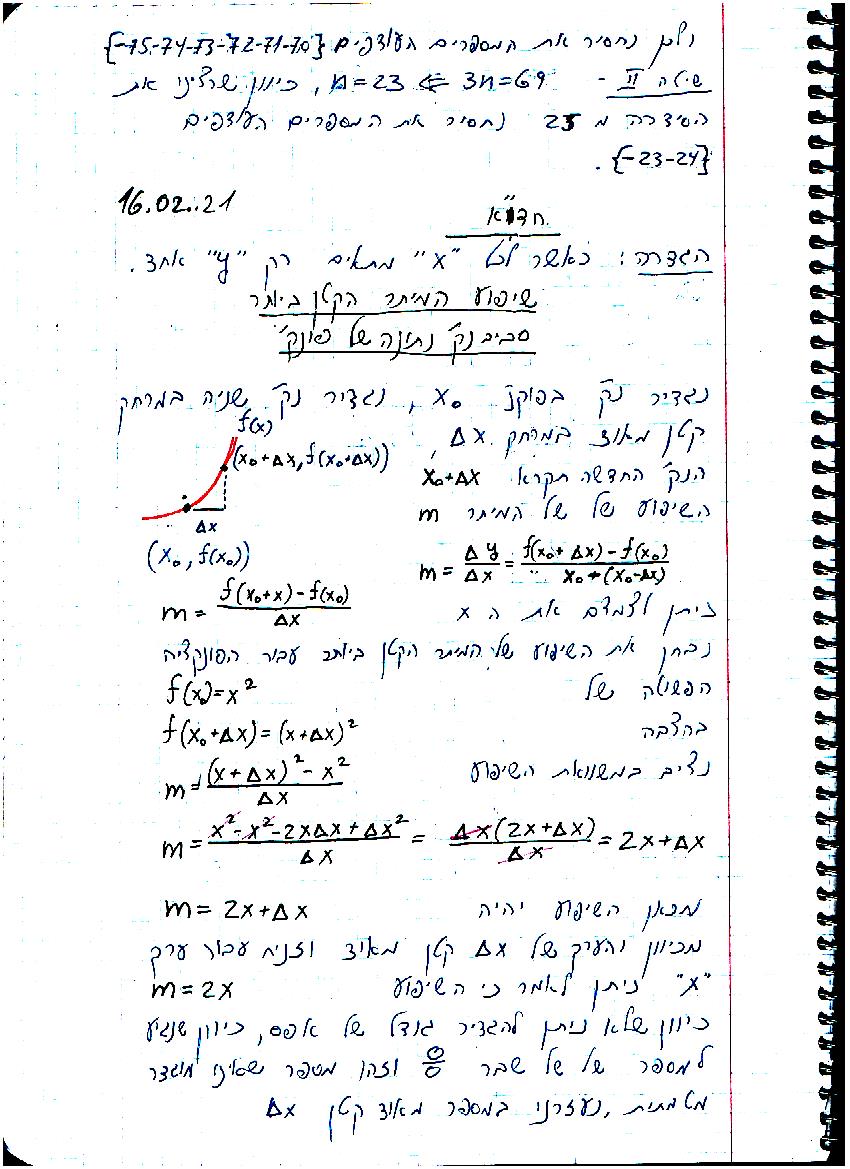 ולכן נחסיר את המספרים העודפים {-75-74-73-72-71-70}
שיטה II - 3n=69 ⇐ n=23, כיוון שרצינו את
הסידרה מ 25 נחסיר את המספרים העודפים
{-23-24}.
16.02.21
חדו"א
הגדרה: כאשר לכל "x" מתאים רק "y" אחד.
שיפוע המיתר הקטן ביותר
סביב נק' נתונה של פונק'
נגדיר נק' בפונק' x₀, נגדיר נק' שניה במרחק
קטן מאוד במרחק Δx,
f(x)
(x₀+Δx, f(x₀+Δx))
הנק' החדשה תקרא x₀+Δx
השיפוע של של המיתר m
Δx
(x₀, f(x₀))
m = Δy/Δx = (f(x₀+Δx)-f(x₀))/(x₀+(x₀-Δx))
m = (f(x₀+x)-f(x₀))/Δx
ניתן לצמצם את ה x
נבחן את השיפוע של המיתר הקטן ביותר עבור הפונקציה
הפשוטה של f(x)=x²
בהצבה f(x₀+Δx)=(x+Δx)²
נציב במשוואת השיפוע m=((x+Δx)²-x²)/Δx
m = (x²-x²-2xΔx+Δx²)/Δx = Δx(2x+Δx)/Δx = 2x+Δx
מכאן השיפוע יהיה m=2x+Δx
מכיוון והערך של Δx קטן מאוד וזניח עבור ערך
"x" ניתן לאמר כי השיפוע m=2x
כיוון שלא ניתן להגדיר גודל של אפס, כיוון שנגיע
למספר של של שבר 0/0 וזהו מספר שאינו מוגדר
מטמתית, נעזרני במספר מאוד קטן Δx